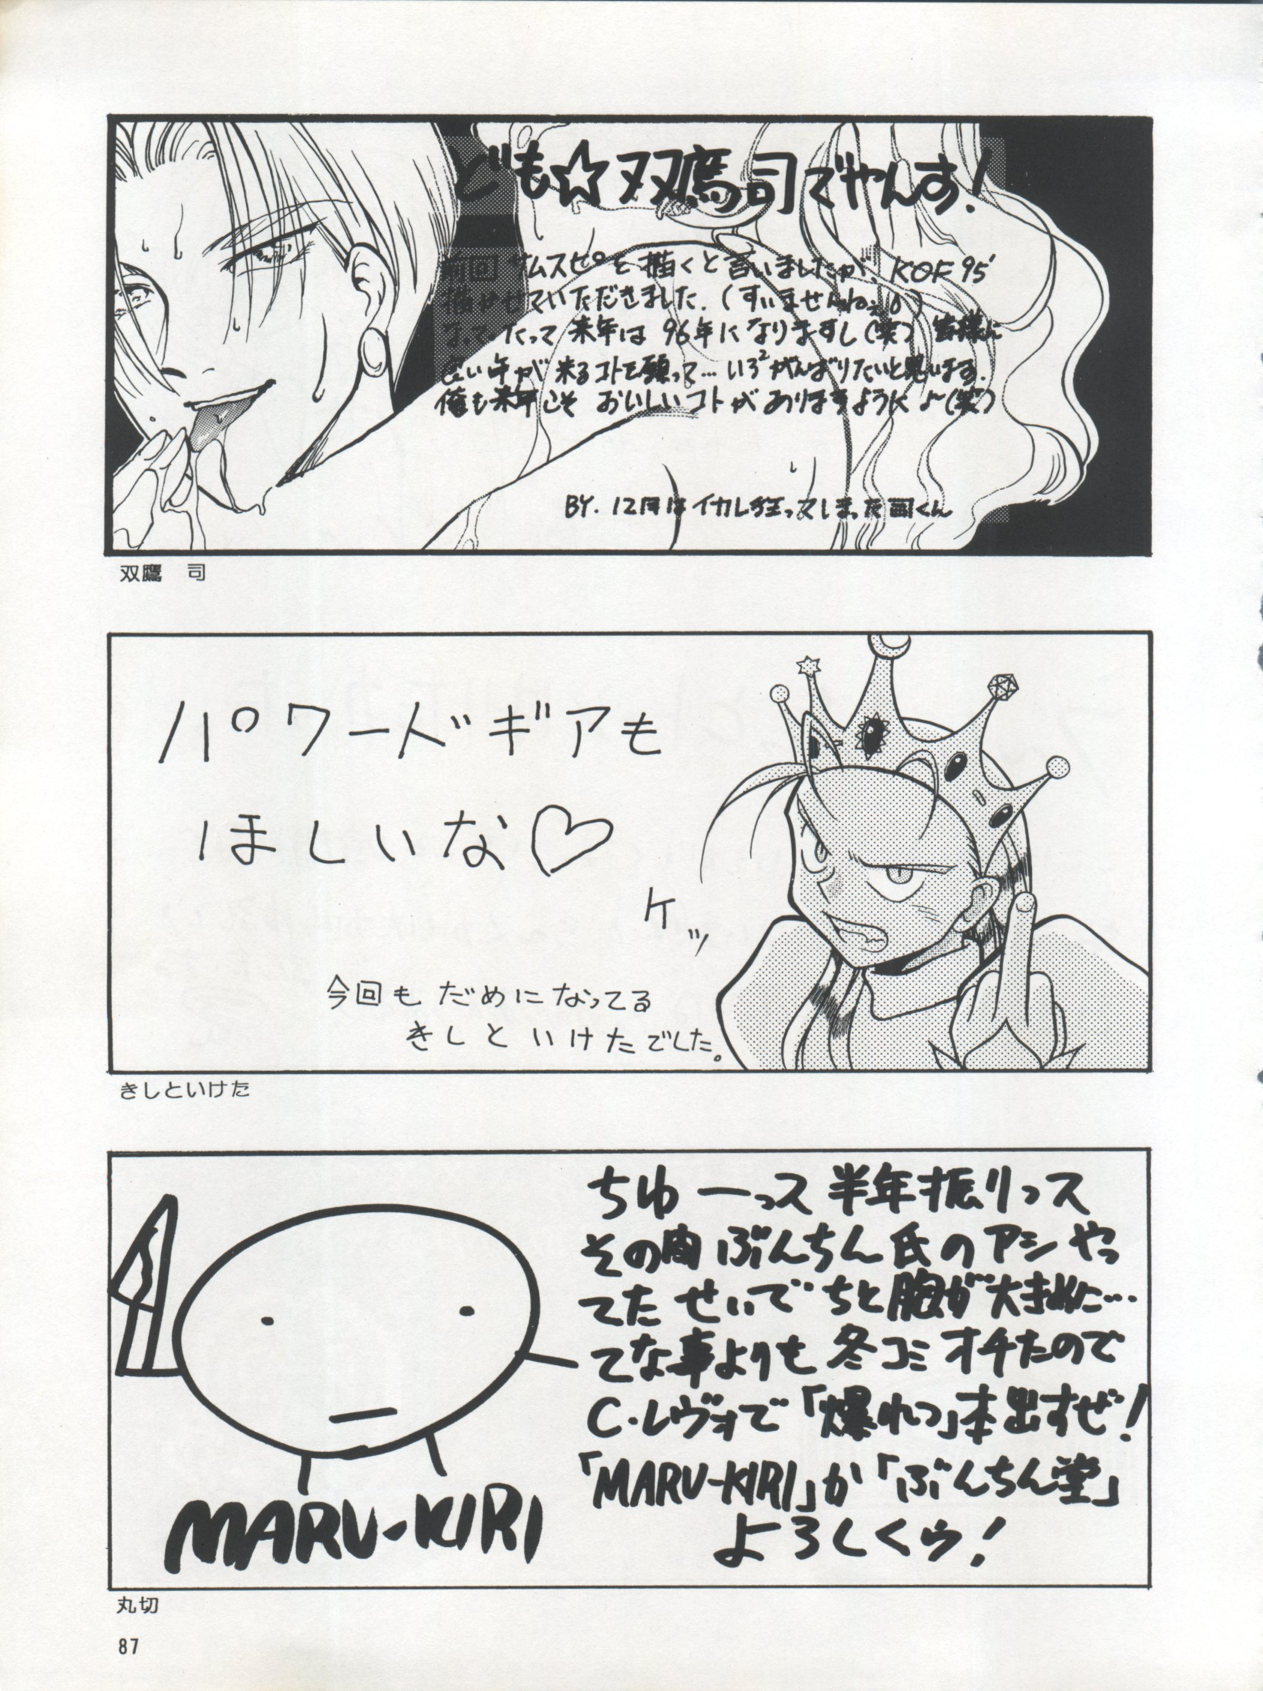 ども☆双鷹司でやんす!
前回サムスピを描くと言いましたが、KOF95'
描かせていただきました.(すいませんねぇ)
なんてたって来年は96年になりますし(笑) 皆様に
良い年が来るコトを願って…いろ²がんばりたいと思います.
俺も来年こそおいしいコトがありますように♪〜(笑)
BY. 12月はイカレ狂ってしまった司くん
双鷹 司
パワードギアも
ほしいな♡
ケッ
今回もだめになってる
きしといけたでした。
きしといけた
ちゆーっス半年振りっス
その間ぶんちん氏のアシやっ
てたせいでちと胸が大きめに…
てな事よりも冬コミオチたので
C・レヴォで「爆れつ」本出すぜ!
「MARU-KIRI」か「ぶんちん堂」
よろしくゥ!
MARU-KIRI
丸切
87